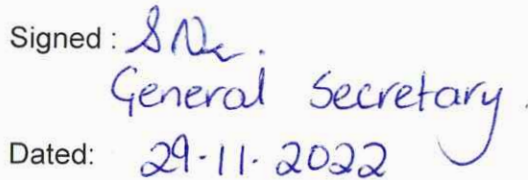 Signed :
General Secretary.
Dated: 29-11-2022